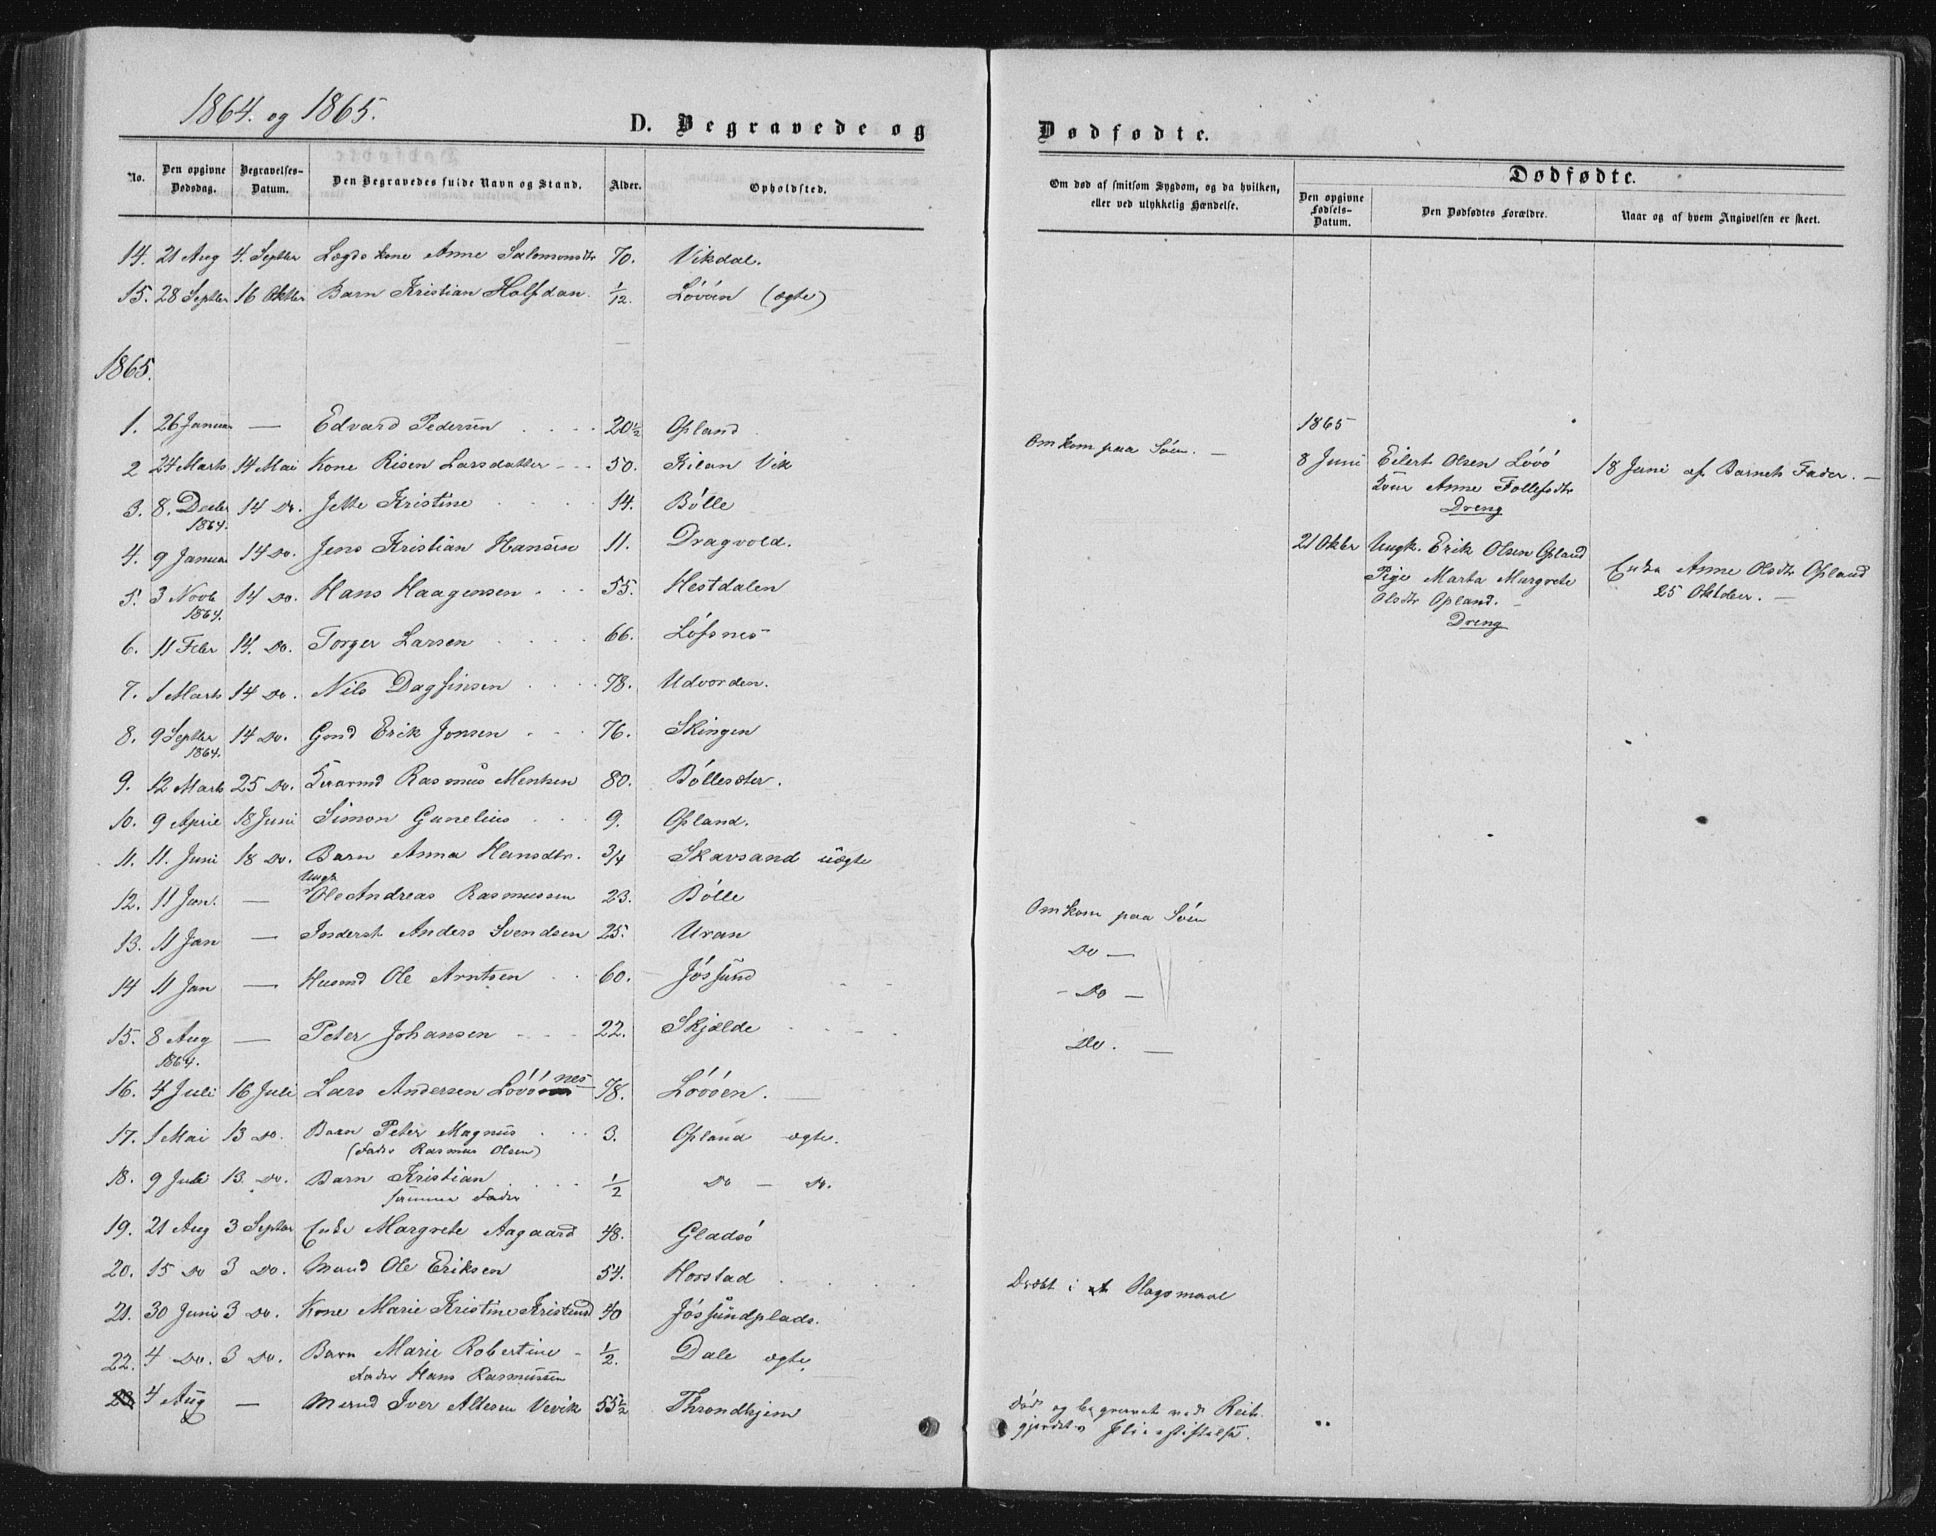 1864. og 1865.
D. Begravede og
No. Den opgivne Dødsdag. Begravelses-Datum. Den Begravedes fulde Navn og Stand. Alder. Opholdsted.
14. 21 Aug 4. Septbr Lægds kone Anne Salomonsdtr 70. Vikdal.
15. 28 Septbr 16 Oktbr Barn Kristian Halfdan. 1/12. Løvøen (ægte)
1865.
1. 26 Januar — Edvard Pedersen 20 1/2 Opland
2 24 Marts 14 Mai Kone Risen Larsdatter 50. Kilan Vik
3. 8. Decbr 14 Do. Jette Kristine 14. Bölle
1864.
4. 9 Januar 14 Do. Jens Kristian Hansen 11. Dragvold.
5. 3 Novb 14 Do. Hans Haagensen 55. Hestdalen
1864.
6. 11 Febr 14. Do. Torger Larsen 66. Löfsnes
7. 1 Marts 14 Do. Nils Dagfinsen 78. Udvorden.
8. 9 Septbr 14 Do. Gmd Erik Jonsen 76. Skingen
1864.
9. 12 Marts 25 Do. Rasmus Mentsen 80. Böllesæter.
10. 9 April 18 Juni Simon Gunelius 9. Opland.
11. 11. Juni 18 Do. Barn Anna Hansdtr. 3/4 Skavsand uægte
Ungk
12. 11 Jan. — Ole Andreas Rasmussen 23. Bölle
13. 11 Jan — Inderst Anders Svendsen 25. Uran
14 11 Jan — Husmd Ole Arntsen 60. Jössund
15. 8 Aug — Peter Johansen 22. Skjælde
1864.
16. 4 Juli 16 Juli Lars Andersen Lövönes 78. Lövöen.
17. 1 Mai 13 Do. Barn Peter Magnus 3. Opland ægte.
(Fader Rasmus Olsen)
18. 9 Juli 13. Do. Barn Kristian 1/2 Do — Do.
samme Fader
19. 21 Aug 3 Septbr Enke Margrete Aagaard 48. Gladsö
20. 15 Do 3 Do. Mand Ole Eriksen 54. Horstad
21. 30 Juni 3 Do. Kone Marie Kristine Kristensd 40 Jössundplads.
22. 4 Do. 3 Do. Barn Marie Robertine 1/2. Dale ægte
Fader Hans Rasmussen
23 4 Aug — Mand Iver Altesen Vevik 55 1/2 Throndhjem
Dødfødte.
Om død af smitsom Sygdom, og da hvilken, eller ved ulykkelig Hændelse.
Dødfødte.
Den opgivne Fødsels-Datum. Den Dødfødtes Forældre. Naar og af hvem Angivelsen er skeet.
Omkom paa Söen. —
1865
8 Juni Eilert Olsen Lövö 18 Juni af Barnets Fader. —
Anne Tollefsdtr
Dreng
21 Oktbr Ungk. Erik Olsen Opland Enke Anne Olsdtr Opland
Pige Marta Margrete 25 Oktober. —
Olsdtr Opland. —
Dreng
Omkom paa Söen
Do —
- Do —
Do. —
Dræbt i et Slagsmaal
Død og begravet ved Reit-
gjerdets Stiftelse.